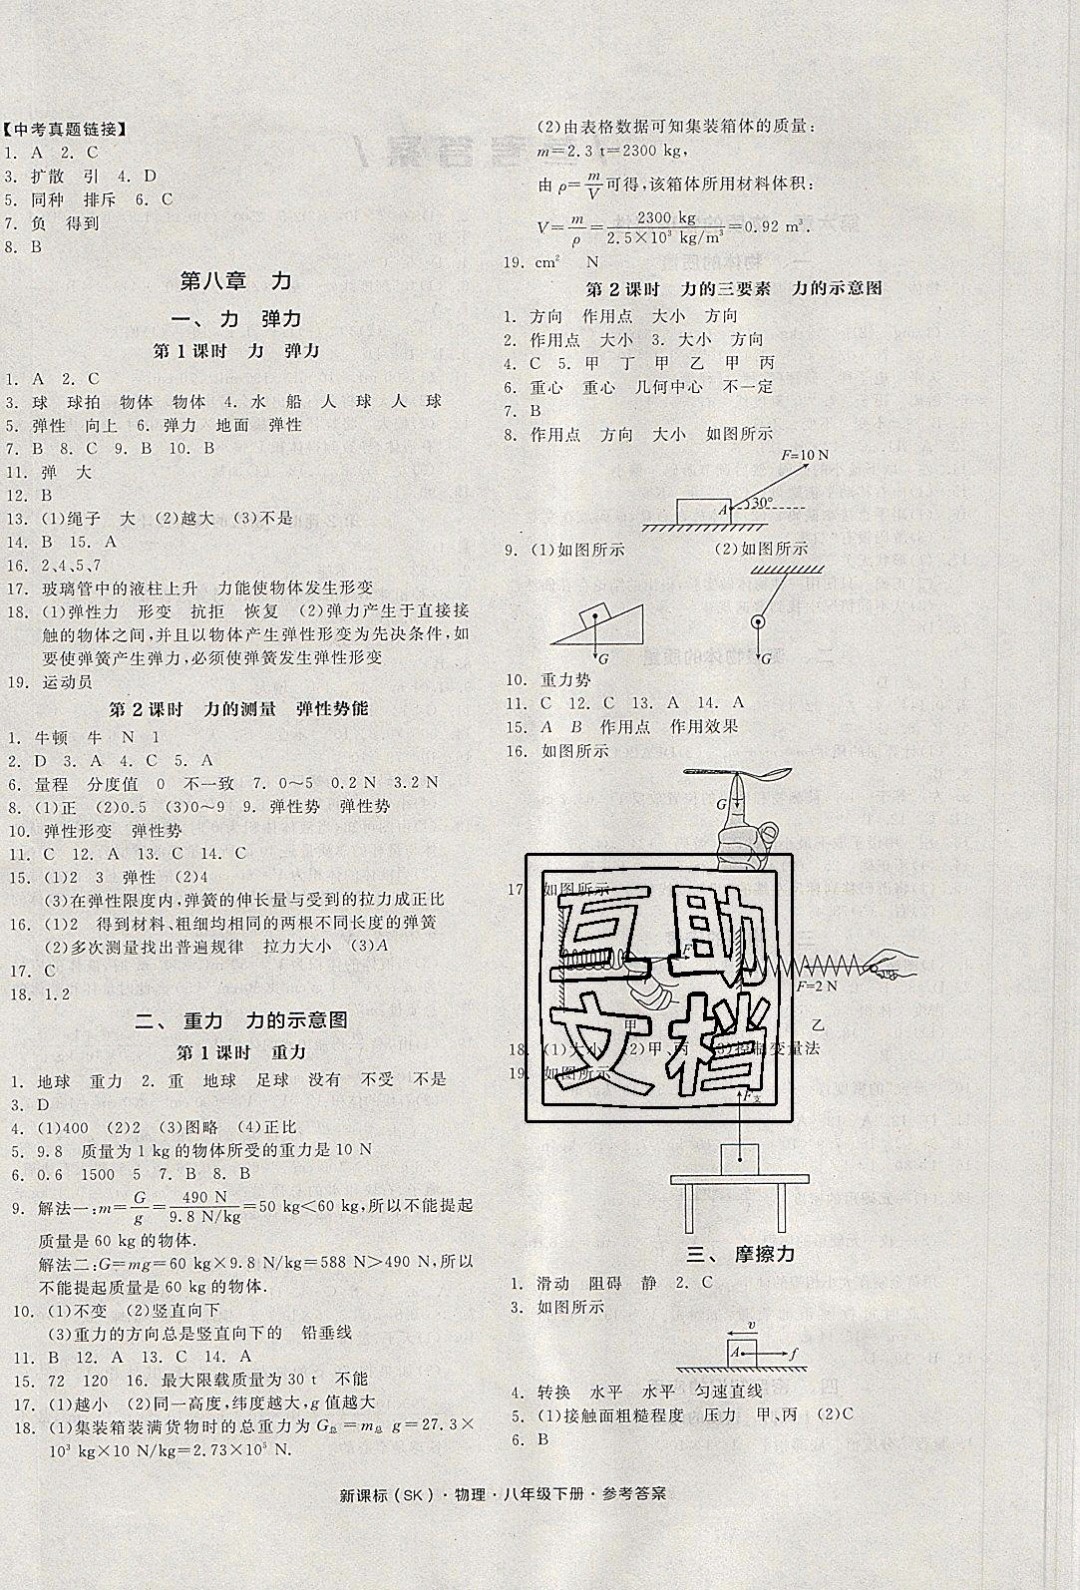 【中考真题链接】
1. A 2. C
3. 扩散 引 4. D
5. 同种 排斥 6. C
7. 负 得到
8. B
第八章 力
一、力 弹力
第1课时 力 弹力
1. A 2. C
3. 球 球拍 物体 物体 4. 水 船 人 球 人 球
5. 弹性 向上 6. 弹力 地面 弹性
7. B 8. C 9. B 10. B
11. 弹 大
12. B
13. (1)绳子 大 (2)越大 (3)不是
14. B 15. A
16. 2、4、5、7
17. 玻璃管中的液柱上升 力能使物体发生形变
18. (1)弹性力 形变 抗拒 恢复 (2)弹力产生于直接接
触的物体之间,并且以物体产生弹性形变为先决条件,如
要使弹簧产生弹力,必须使弹簧发生弹性形变
19. 运动员
第2课时 力的测量 弹性势能
1. 牛顿 牛 N 1
2. D 3. A 4. C 5. A
6. 量程 分度值 0 不一致 7. 0～5 0.2 N 3.2 N
8. (1)正 (2)0.5 (3)0～9 9. 弹性势 弹性势
10. 弹性形变 弹性势
11. C 12. A 13. C 14. C
15. (1)2 3 弹性 (2)4
(3)在弹性限度内,弹簧的伸长量与受到的拉力成正比
16. (1)2 得到材料、粗细均相同的两根不同长度的弹簧
(2)多次测量找出普遍规律 拉力大小 (3)A
17. C
18. 1.2
二、重力 力的示意图
第1课时 重力
1. 地球 重力 2. 重 地球 足球 没有 不受 不是
3. D
4. (1)400 (2)2 (3)图略 (4)正比
5. 9.8 质量为1 kg的物体所受的重力是10 N
6. 0.6 1500 5 7. B 8. B
9. 解法一:m=G/g=490 N/9.8 N/kg=50 kg<60 kg,所以不能提起
质量是60 kg的物体.
解法二:G=mg=60 kg×9.8 N/kg=588 N>490 N,所以
不能提起质量是60 kg的物体.
10. (1)不变 (2)竖直向下
(3)重力的方向总是竖直向下的 铅垂线
11. B 12. A 13. C 14. A
15. 72 120 16. 最大限载质量为30 t 不能
17. (1)越小 (2)同一高度,纬度越大,g值越大
18. (1)集装箱装满货物时的总重力为G总=m总 g=27.3×
10³ kg×10 N/kg=2.73×10⁵ N.
(2)由表格数据可知集装箱体的质量:
m=2.3 t=2300 kg,
由ρ=m/V可得,该箱体所用材料体积:
V=m/ρ=2300 kg/2.5×10³ kg/m³=0.92 m³.
19. cm² N
第2课时 力的三要素 力的示意图
1. 方向 作用点 大小 方向
2. 作用点 大小 3. 大小 方向
4. C 5. 甲 丁 甲 乙 甲 丙
6. 重心 重心 几何中心 不一定
7. B
8. 作用点 方向 大小 如图所示
F=10 N
A 30°
9. (1)如图所示 (2)如图所示
G G
10. 重力势
11. C 12. C 13. A 14. A
15. A B 作用点 作用效果
16. 如图所示
G
17. 如图所示
F
F=2 N
甲 乙
18. (1)大小 (2)甲、丙 (3)控制变量法
19. 如图所示
互助
文档
F支
三、摩擦力
1. 滑动 阻碍 静 2. C
3. 如图所示
v
A f
4. 转换 水平 水平 匀速直线
5. (1)接触面粗糙程度 压力 甲、丙 (2)C
6. B
新课标(SK)·物理·八年级下册·参考答案